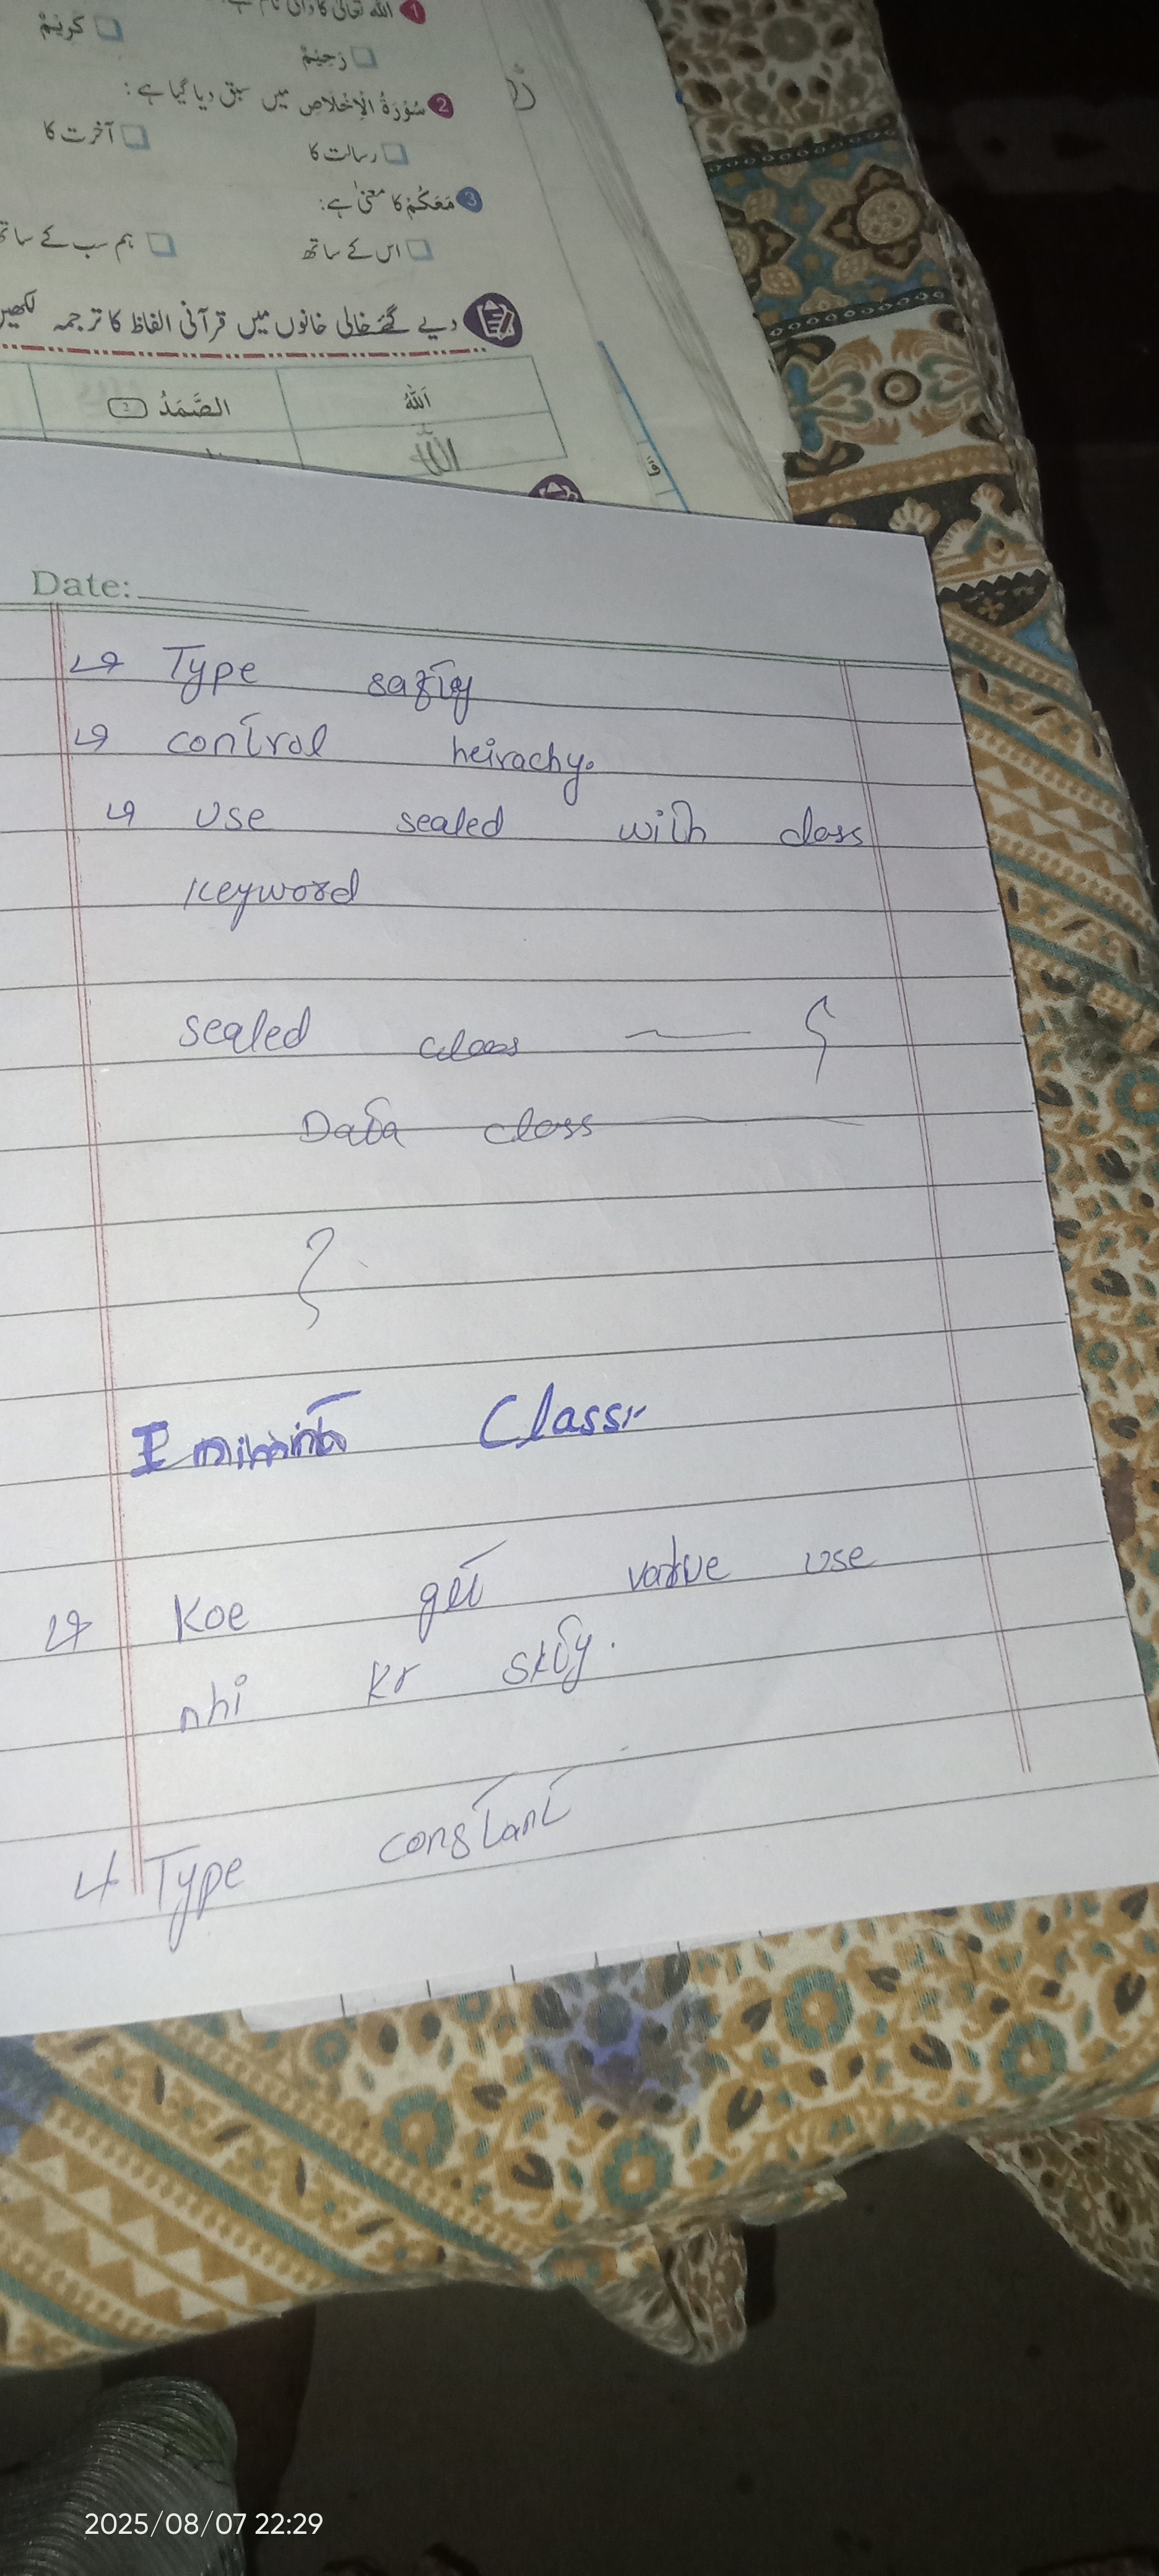 1 اللہ تعالیٰ کا ذاتی نام ہے
رَحِيْمٌ كَرِيْمٌ
2 سُوْرَةُ الْاِخْلَاصِ میں سبق دیا گیا ہے:
رسالت کا آخرت کا
3 مَعَكُمْ کا معنیٰ ہے:
اس کے ساتھ ہم سب کے ساتھ
دیے گئے خالی خانوں میں قرآنی الفاظ کا ترجمہ لکھیں
اَللّٰهُ الصَّمَدُ 2
اللہ
Date:
Type
control heirachy.
use sealed with class
keyword
sealed class {
Data class
}
Class:-
Koe get value use
nhi kr skty.
Type constant
2025/08/07 22:29